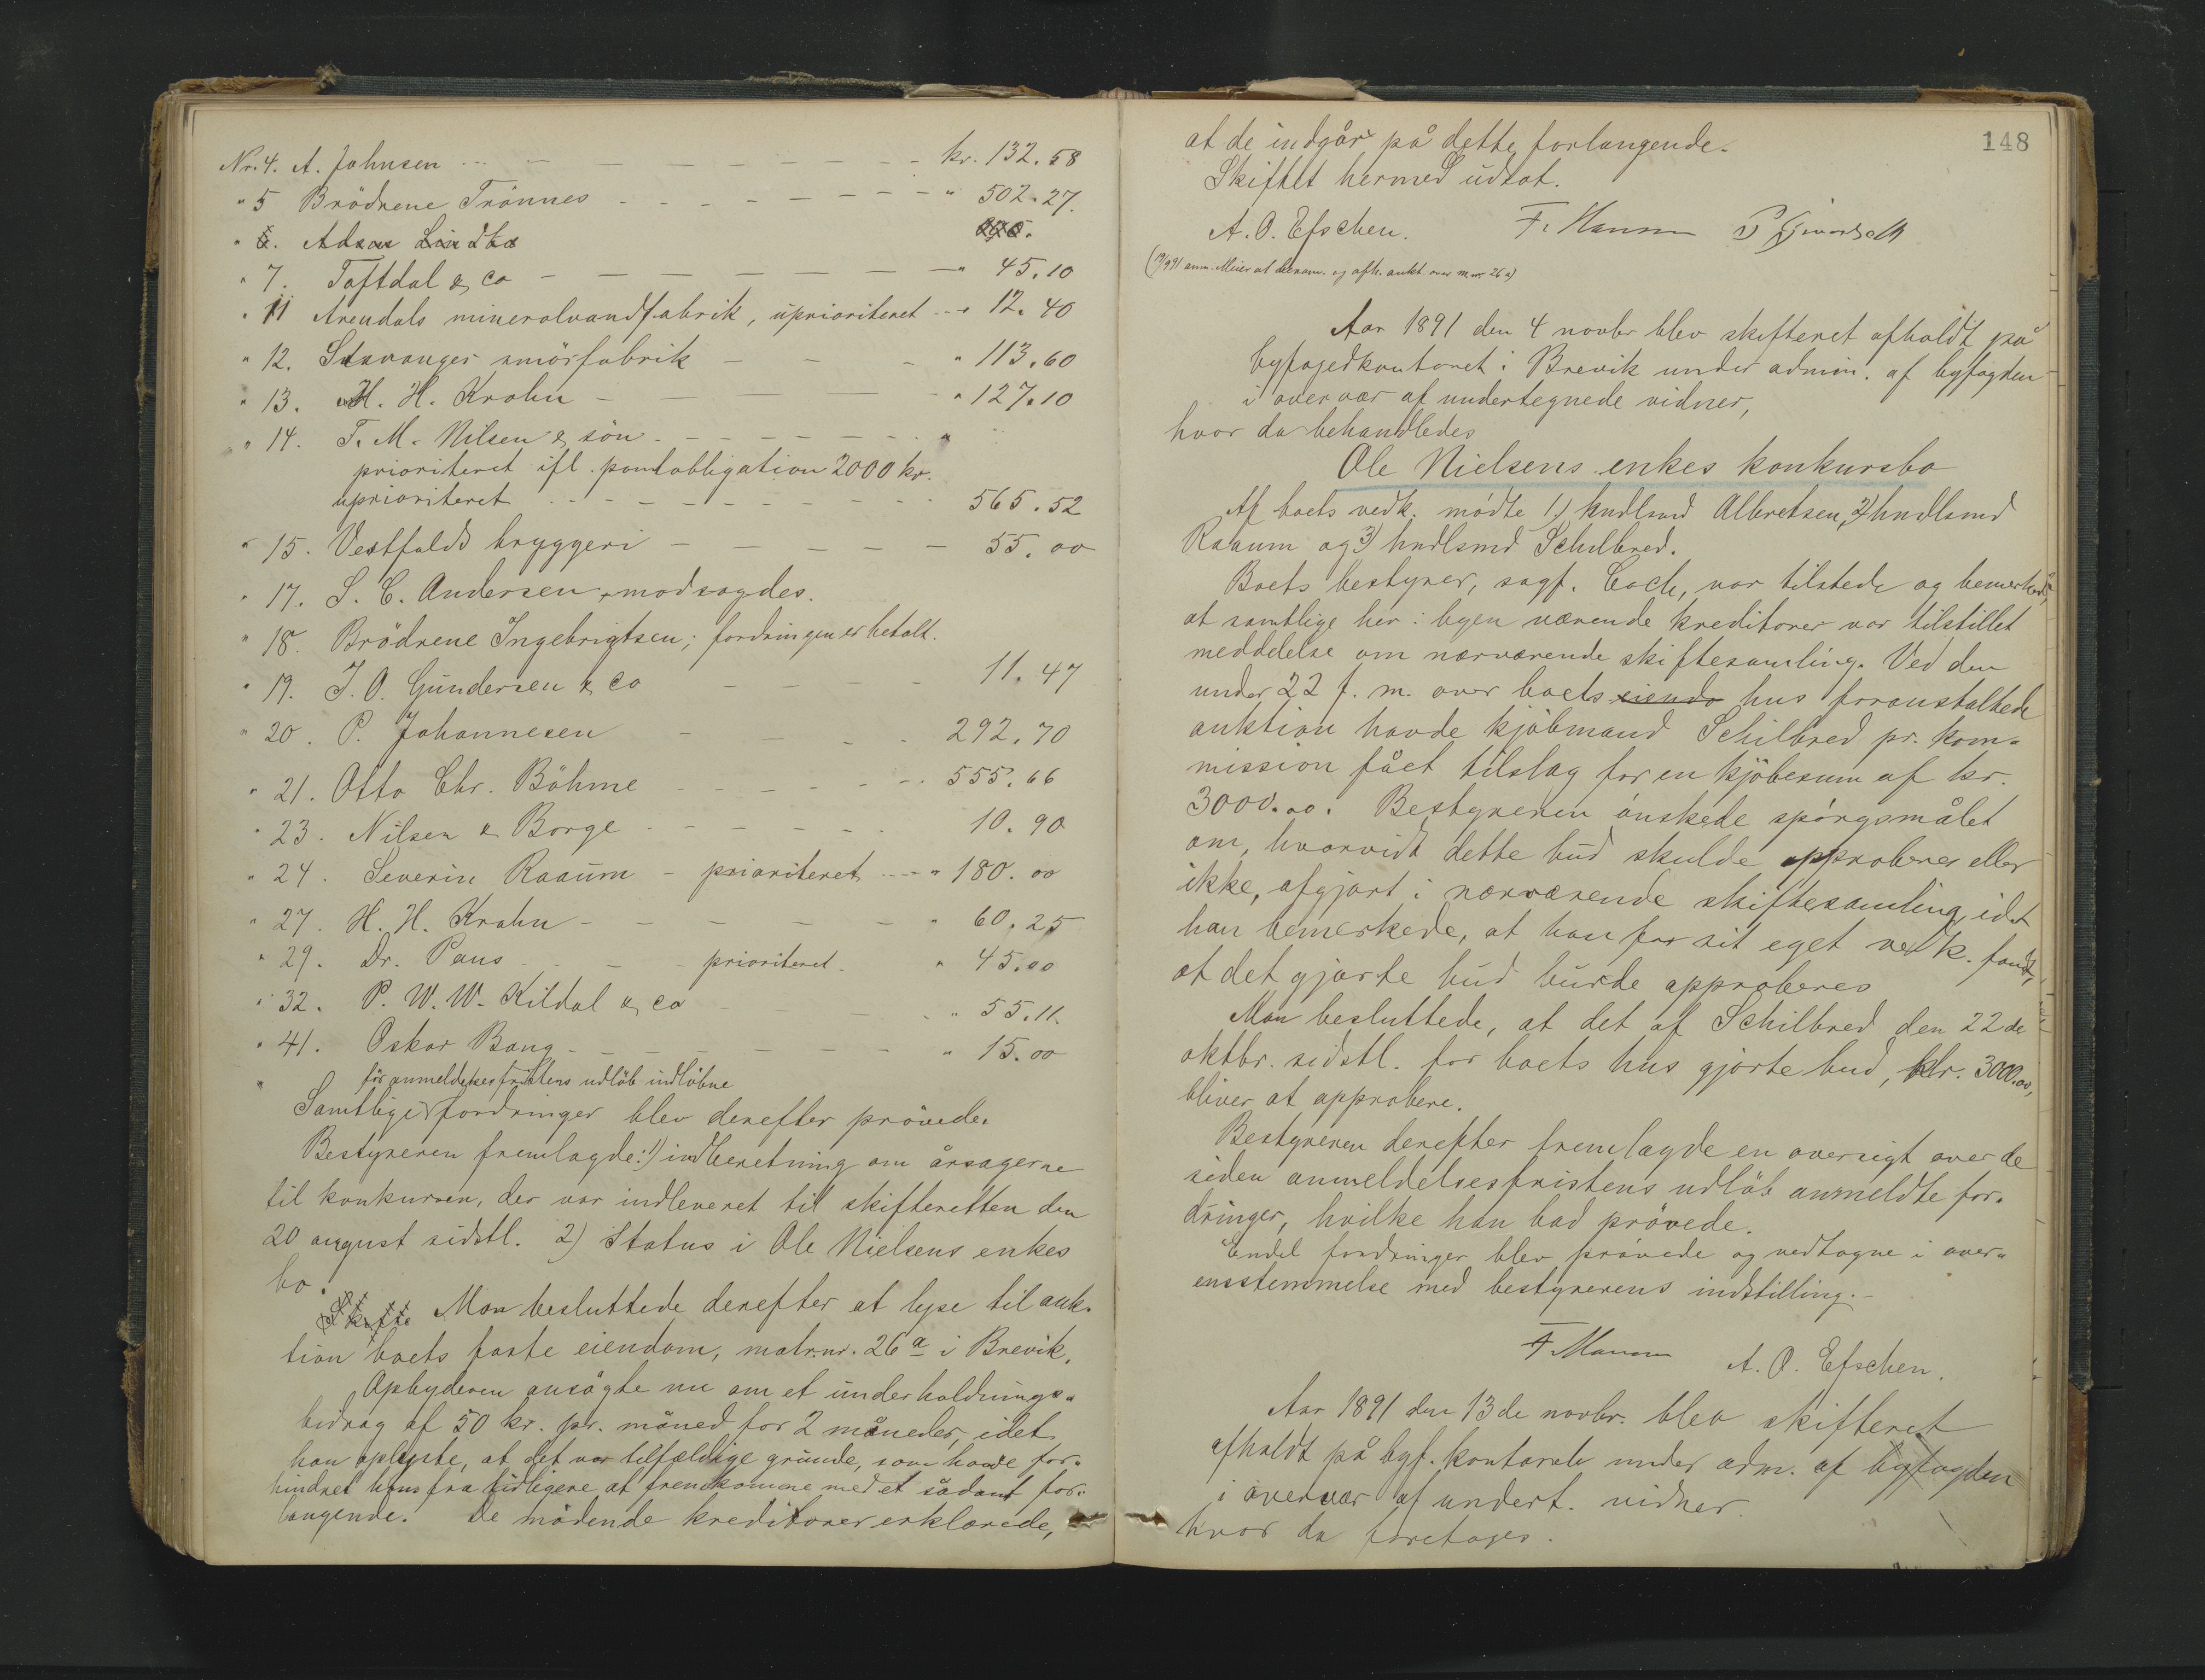 Nr. 4. A. Johnsen kr. 132.58
" 5 Brödrene Trönnes " 502.27.
" 6.
" 7. Toftdal & co " 45.10
" 11 Arendals mineralvandfabrik, uprioriteret " 12.40
" 12. Stavanger smörfabrik " 113.60
" 13. H. H. Krohn " 127.10
" 14. T. M. Nilsen & sön "
prioriteret ifl. pantobligation 2000 kr.
uprioriteret 565.52
" 15. Vestfolds bryggeri 55.00
" 17. S. C. Andersen, modsagdes.
" 18. Brödrene Ingebrigtsen; fordringen er betalt.
" 19. J. O. Gundersen & co 11.47
" 20. P. Johannesen 292.70
" 21. Otto Chr. Böhme 555.66
" 23. Nilsen & Borge 10.90
" 24. Severin Raaum - prioriteret " 180.00
" 27. H. H. Krohn " 60.25
" 29. Dr. Paus prioriteret " 45.00
" 32. P. W. W. Kildal & co " 55.11.
" 41. Oskar Bang " 15.00
" för anmeldelsesfristens udlöb indlöbne
Samtlige fordringer blev derefter prövede.
Bestyreren fremlagde: 1) indberetning om årsagerne
til konkursen, der var indleveret til skifteretten den
20 august sidstl. 2) Status i Ole Nielsens enkes
bo.
Skifte Man besluttede derefter at lyse til auk-
tion boets faste eiendom, matr. nr. 26 a i Brevik.
Opbyderen ansögte nu om et underholdnings-
bidrag af 50 kr. pr. måned for 2 måneder, idet
han oplyste, at det var tilfældige grunde, som havde for-
hindret ham fra tidligere at fremkomme med et sådant for-
langende. De mödende kreditorer erklærede,
148
at de indgår på dette forlangende.
Skiftet hermed udsat.
A. O. Efschen. F. Hansen
anm. Meier at bekjam. og afh. aukt. over m. nr. 26 a)
Aar 1891 den 4 novbr blev skifteret afholdt på
byfogedkontoret i Brevik under admin. af byfogden
i overvær af undertegnede vidner,
hvor da behandledes
Ole Nielsens enkes konkursbo
Af boets vedk. mødte 1) hndlsmd Albretsen, 2) hndlsmd
Raaum og 3) hndlsmd Schilbred.
Boets bestyrer, sagf. Coch, var tilstede og bemerkede,
at samtlige her i byen værende kreditorer var tilstillet
meddelelse om nærværende skiftesamling. Ved den
under 22 f. m. over boets eiendo hus foranstaltede
auktion havde kjöbmand Schilbred pr. kom-
mission fået tilslag for en kjöbesum af kr.
3000.00. Bestyreren ønskede spörgsmålet
om, hvorvidt dette bud skulde approberes eller
ikke, afgjort i nærværende skiftesamling, idet
han bemerkede, at han for sit eget vedk. fandt,
at det gjorte bud burde approberes
Man besluttede, at det af Schilbred den 22de
oktbr. sidstl. for boets hus gjorte bud, kr. 3000.00,
bliver at approbere.
Bestyreren derefter fremlagde en oversigt over de
siden anmeldelsesfristens udlöb anmeldte for-
dringer, hvilke han bad prövede.
Endel fordringer blev prövede og vedtagne i over-
ensstemmelse med bestyrerens indstilling.-
F. Hansen A. O. Efschen.
Aar 1891 den 13de novbr. blev skifteret
afholdt på byf. kontoret under adm. af byfogden
i overvær af undert. vidner.
hvor da foretoges.